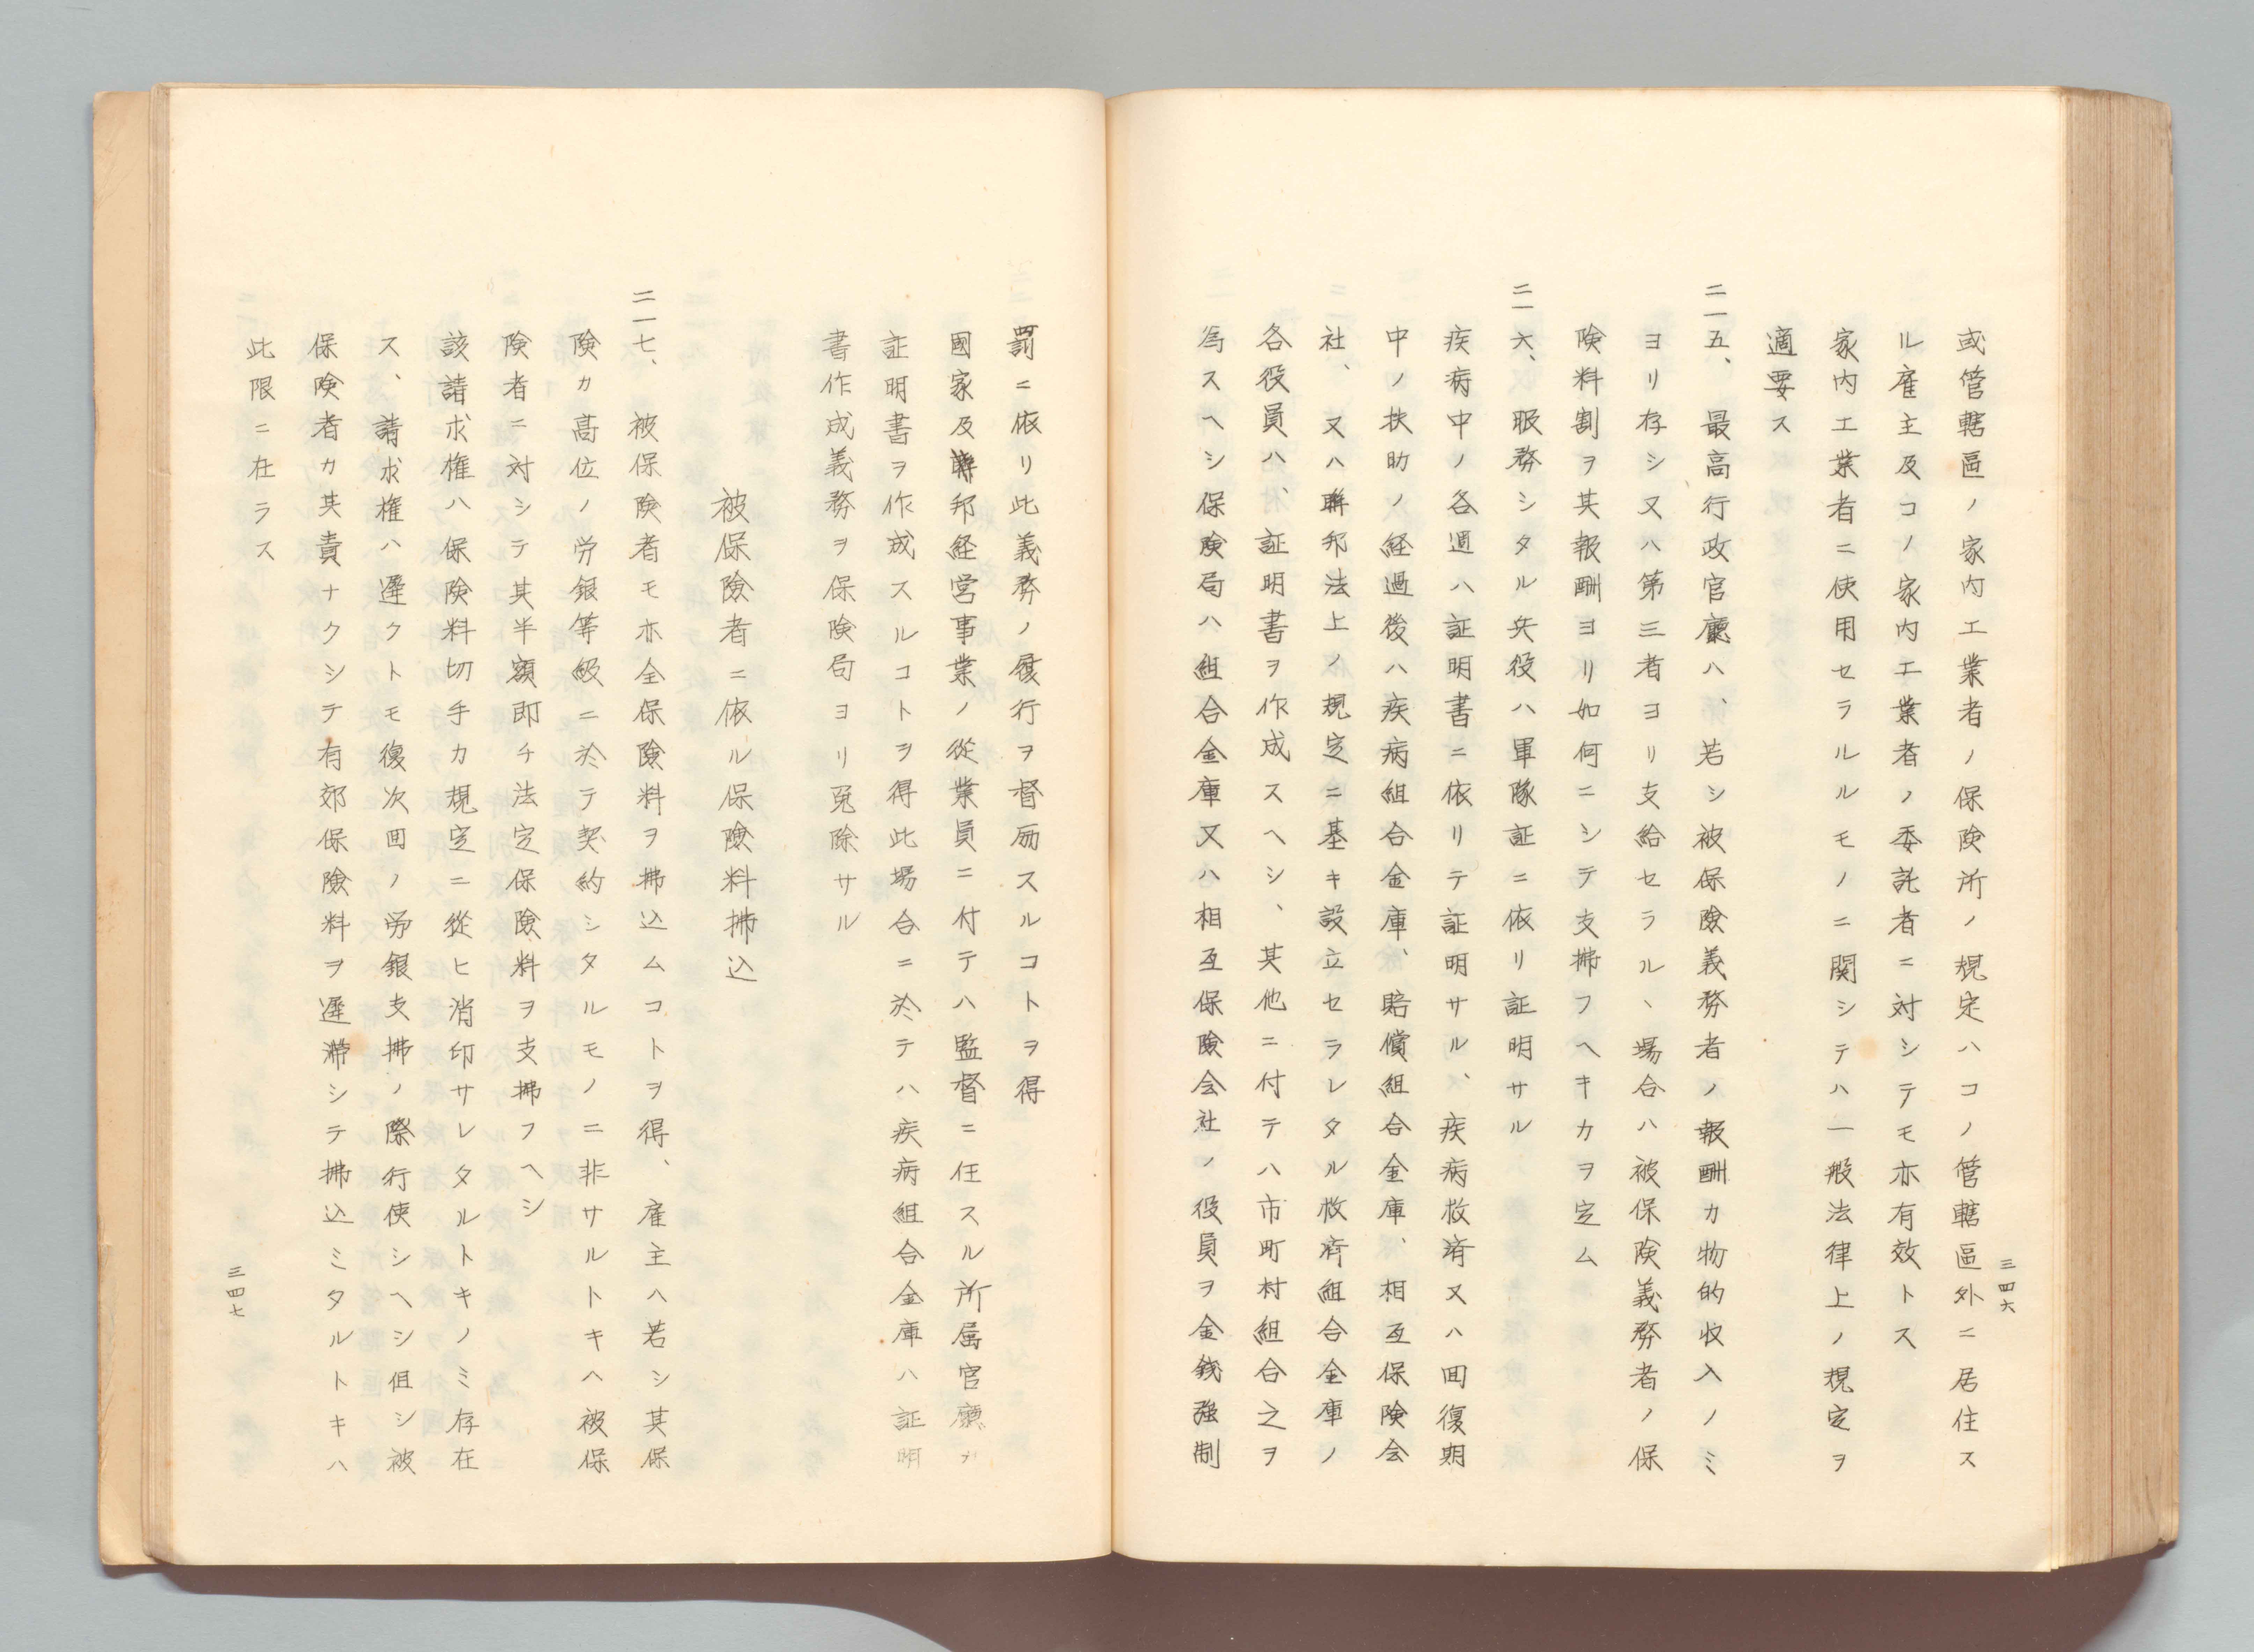 三四六
或管轄區ノ家内工業者ノ保険所ノ規定ハコノ管轄區外ニ居住ス
ル雇主及コノ家内工業者ノ委託者ニ対シテモ亦有效トス
家内工業者ニ使用セラルルモノニ関シテハ一般法律上ノ規定ヲ
適要ス
二一五、最高行政官廳ハ、若シ被保險義務者ノ報酬カ物的収入ノミ
ヨリ存シ又ハ第三者ヨリ支給セラル丶場合ハ被保険義務者ノ保
険料割ヲ其報酬ヨリ如何ニシテ支拂フヘキカヲ定ム
二一六、服務シタル兵役ハ軍隊証ニ依リ証明サル
疾病中ノ各週ハ証明書ニ依リテ証明サル、疾病救濟又ハ回復期
中ノ扶助ノ経過後ハ疾病組合金庫、賠償組合金庫、相互保険会
社、又ハ聯邦法上ノ規定ニ基キ設立セラレタル救済組合金庫ノ
各役員ハ、証明書ヲ作成スヘシ、其他ニ付テハ市町村組合之ヲ
為スヘシ保険局ハ組合金庫又ハ相互保險会社ノ役員ヲ金銭強制
罰ニ依リ此義務ノ履行ヲ督励スルコトヲ得
國家及聯邦経営事業ノ從業員ニ付テハ監督ニ任スル所属官廳カ
証明書ヲ作成スルコトヲ得此場合ニ於テハ疾病組合金庫ハ証明
書作成義務ヲ保険局ヨリ免除サル
被保險者ニ依ル保險料拂込
二一七、被保険者モ亦全保險料ヲ拂込ムコトヲ得、雇主ハ若シ其保
険カ高位ノ労銀等級ニ於テ契約シタルモノニ非サルトキヘ被保
険者ニ対シテ其半額即チ法定保險料ヲ支拂フヘシ
該請求権ハ保険料切手カ規定ニ從ヒ消印サレタルトキノミ存在
ス、請求権ハ遅クトモ復次回ノ労銀支拂ノ際行使シヘシ但シ被
保険者カ其責ナクシテ有郊保險料ヲ遅滞シテ拂込ミタルトキハ
此限ニ在ラス
三四七